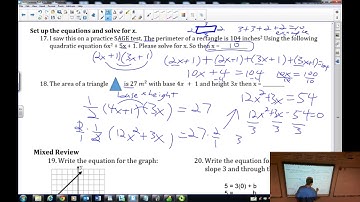 2 3+3+2+2=10
Set up the equations and solve for x.
17. I saw this on a practice SAGE test. The perimeter of a rectangle is 104 inches? Using the following
quadratic equation 6x² + 5x + 1. Please solve for x. So then x = 10
(2x+1)(3x+1) (2x+1)+(2x+1)+(3x+1)+(3x+1)=104
10x + 4 = 104
10x = 100
10 10
18. The area of a triangle is 27 m² with base 4x + 1 and height 3x then x =
base x height
1/2 (4x+1)(3x) = 27
12x²+3x = 54
2/1 · 1/2 (12x²+3x) = 27 · 2/1
12x²+3x-54=0
3 3 3
3
Mixed Review
19. Write the equation for the graph:
20. Write the equation fo
slope 3 and through t
5 = 3(0) + b